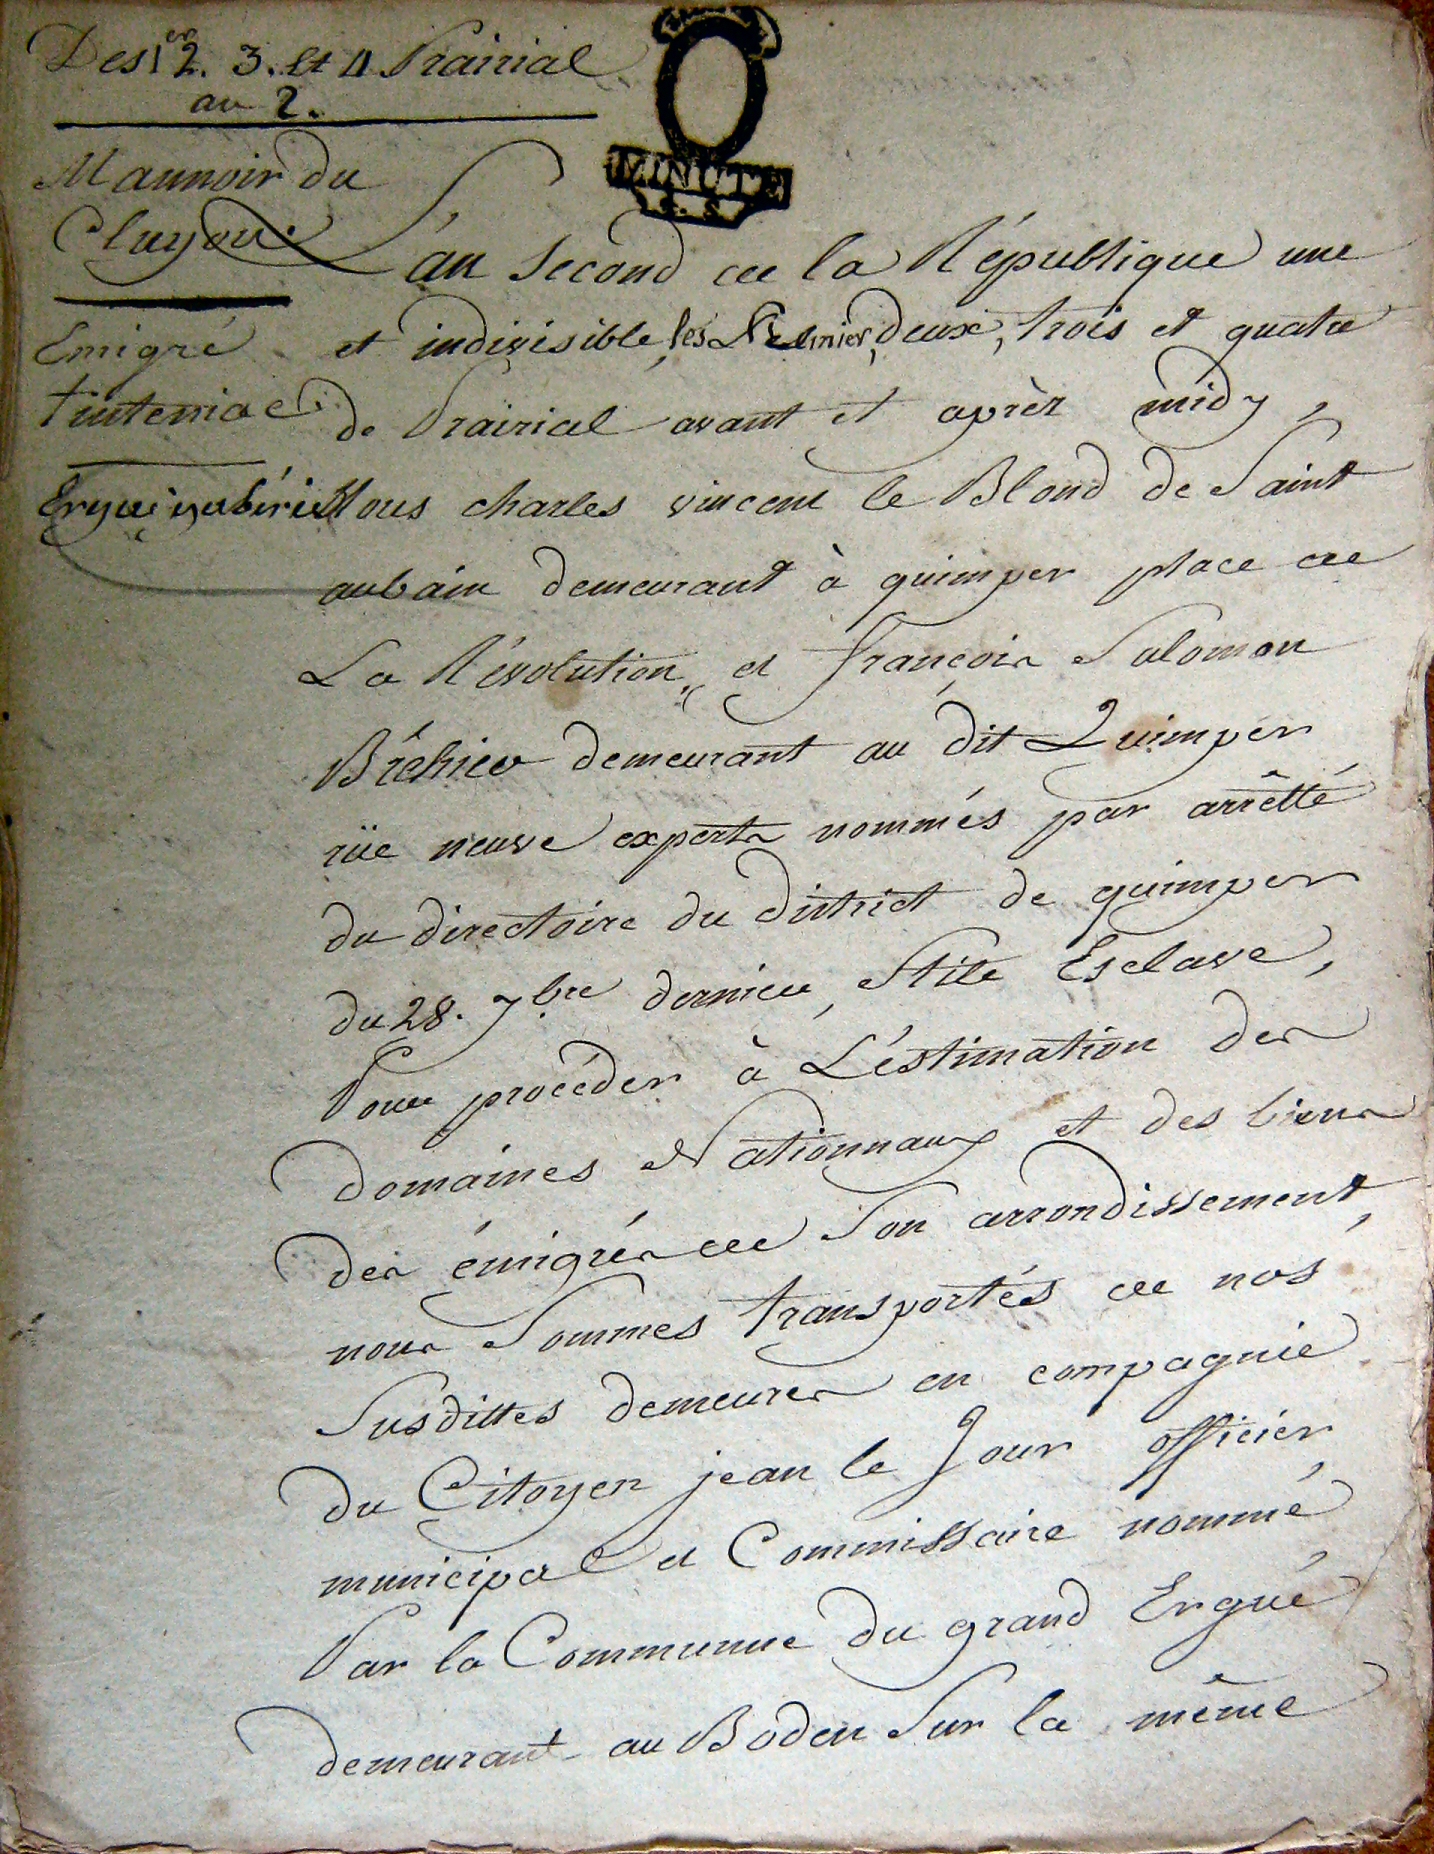 Des 1er 2. 3. et 4 Prairial
an 2.
MINUTE
Mannoir du
Cluyou.
Emigré
tinteniac
Ergué gabéric
L'an second de la République une
et indivisible, les Premier, deux, trois et quatre
de Prairial avant et après midy,
Nous charles vincent le Blond de Saint
aubain demeurant à quimper place de
La Révolution, et françois Salomon
Bréhier demeurant au dit Quimper
rüe neuve experts nommés par arrêtté
du directoire du district de quimper
du 28. 7bre dernier, Stile Esclave,
Pour procéder à L'éstimation des
domaines Nationnaux et des biens
des émigrés de Son arrondissement,
nous Sommes transportés de nos
Susdittes demeures en compagnie
du Citoyen jean le Jour officier
municipal et Commissaire nommé
Par la Commune du grand Ergué,
demeurant au Boden Sur la même